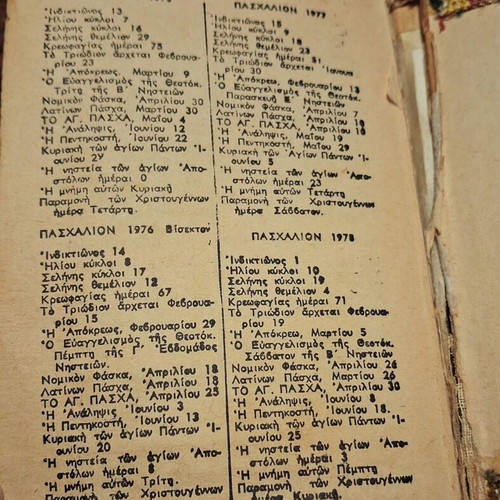 Ἰνδικτιῶνος 13
Ἡλίου κύκλοι 7
Σελήνης κύκλοι 16
Σελήνης θεμέλιον 29
Κρεωφαγίας ἡμέραι 75
Τὸ Τριώδιον ἄρχεται Φεβρουα-
ρίου 23
Ἡ Ἀπόκρεως, Μαρτίου 9
Ὁ Εὐαγγελισμὸς τῆς Θεοτόκ.
Τρίτη τῆς Β΄ Νηστειῶν
Νομικὸν Φάσκα, Ἀπριλίου 30
Λατίνων Πάσχα, Μαρτίου 30
ΤΟ ΑΓ. ΠΑΣΧΑ, Μαΐου 4
Ἡ Ἀνάληψις, Ἰουνίου 12
Ἡ Πεντηκοστή, Ἰουνίου 22
Κυριακὴ τῶν ἁγίων Πάντων Ἰ-
ουνίου 29
Ἡ νηστεία τῶν ἁγίων Ἀπο-
στόλων ἡμέραι 0
Ἡ μνήμη αὐτῶν Κυριακῇ
Παραμονὴ τῶν Χριστουγέννων
ἡμέρᾳ Τετάρτῃ.
ΠΑΣΧΑΛΙΟΝ 1976 Βίσεκτον
Ἰνδικτιῶνος 14
Ἡλίου κύκλοι 8
Σελήνης κύκλοι 17
Σελήνης θεμέλιον 12
Κρεωφαγίας ἡμέραι 67
Τὸ Τριώδιον ἄρχεται Φεβρουα-
ρίου 15
Ἡ Ἀπόκρεως, Φεβρουαρίου 29
Ὁ Εὐαγγελισμὸς, τῆς Θεοτόκ.
Πέμπτη τῆς Γ΄ Ἑβδομάδος
Νηστειῶν.
Νομικὸν Φάσκα, Ἀπριλίου 18
Λατίνων Πάσχα, Ἀπριλίου 18
ΤΟ ΑΓ. ΠΑΣΧΑ, Ἀπριλίου 25
Ἡ Ἀνάληψις Ἰουνίου 3
Ἡ Πεντηκοστή, Ἰουνίου 13
Κυριακὴ τῶν ἁγίων Πάντων Ἰ-
ουνίου 20
Ἡ νηστεία τῶν ἁγίων Ἀπο-
στόλων ἡμέραι 8
Ἡ μνήμη αὐτῶν Τρίτῃ.
Παραμονὴ τῶν Χριστουγέννων
ΠΑΣΧΑΛΙΟΝ 1977
Ἰνδικτιῶνος 15
Ἡλίου κύκλοι 9
Σελήνης κύκλοι 18
Σελήνης θεμέλιον 23
Κρεωφαγίας ἡμέραι 51
Τὸ Τριώδιον ἄρχεται Ἰανουα-
ρίου 30
Ἡ Ἀπόκρεω, Φεβρουαρίου 13
Ὁ Εὐαγγελισμὸς τῆς Θεοτόκ.
Παρασκευῇ Ε΄ Νηστειῶν
Νομικὸν Φάσκα, Ἀπριλίου 7
Λατίνων Πάσχα, Ἀπριλίου
ΤΟ ΑΓ. ΠΑΣΧΑ, Ἀπριλίου
Ἡ Ἀνάληψις, Μαΐου 19
Ἡ Πεντηκοστή, Μαΐου 29
Κυριακὴ τῶν Ἁγίων Πάντων Ἰ-
ουνίου 5
Ἡ νηστεία τῶν ἁγίων Ἀπο-
στόλων ἡμέραι 23
Ἡ μνήμη αὐτῶν Τετάρτῃ
Παραμονὴ τῶν Χριστουγέννων
ἡμέρᾳ Σάββατον.
ΠΑΣΧΑΛΙΟΝ 1978
Ἰνδικτιῶνος 1
Ἡλίου κύκλοι 10
Σελήνης κύκλοι 19
Σελήνης θεμέλιον 4
Κρεωφαγίας ἡμέραι 71
Τὸ Τριώδιον ἄρχεται Φεβρουα-
ρίου 19
Ἡ Ἀπόκρεω, Μαρτίου 5
Ὁ Εὐαγγελισμὸς τῆς Θεοτοκ.
Σάββατον τῆς Β΄ Νηστειῶν
Νομικὸν Φάσκα, Ἀπριλίου 26
Λατίνων Πάσχα, Μαρτίου 26
ΤΟ ΑΓ. ΠΑΣΧΑ, Ἀπριλίου 30
Ἡ Ἀνάληψις, Ἰουνίου 8
Ἡ Πεντηκοστή, Ἰουνίου 18.
Κυριακὴ τῶν ἁγίων Πάντων Ἰ-
ουνίου 25
Ἡ νηστεία τῶν ἁγίων Ἀπο-
στόλων ἡμέραι 3
Ἡ μνήμη αὐτῶν Πέμπτῃ
Παραμονὴ τῶν Χριστουγέννων
ἡμέρᾳ Κυριακῇ.